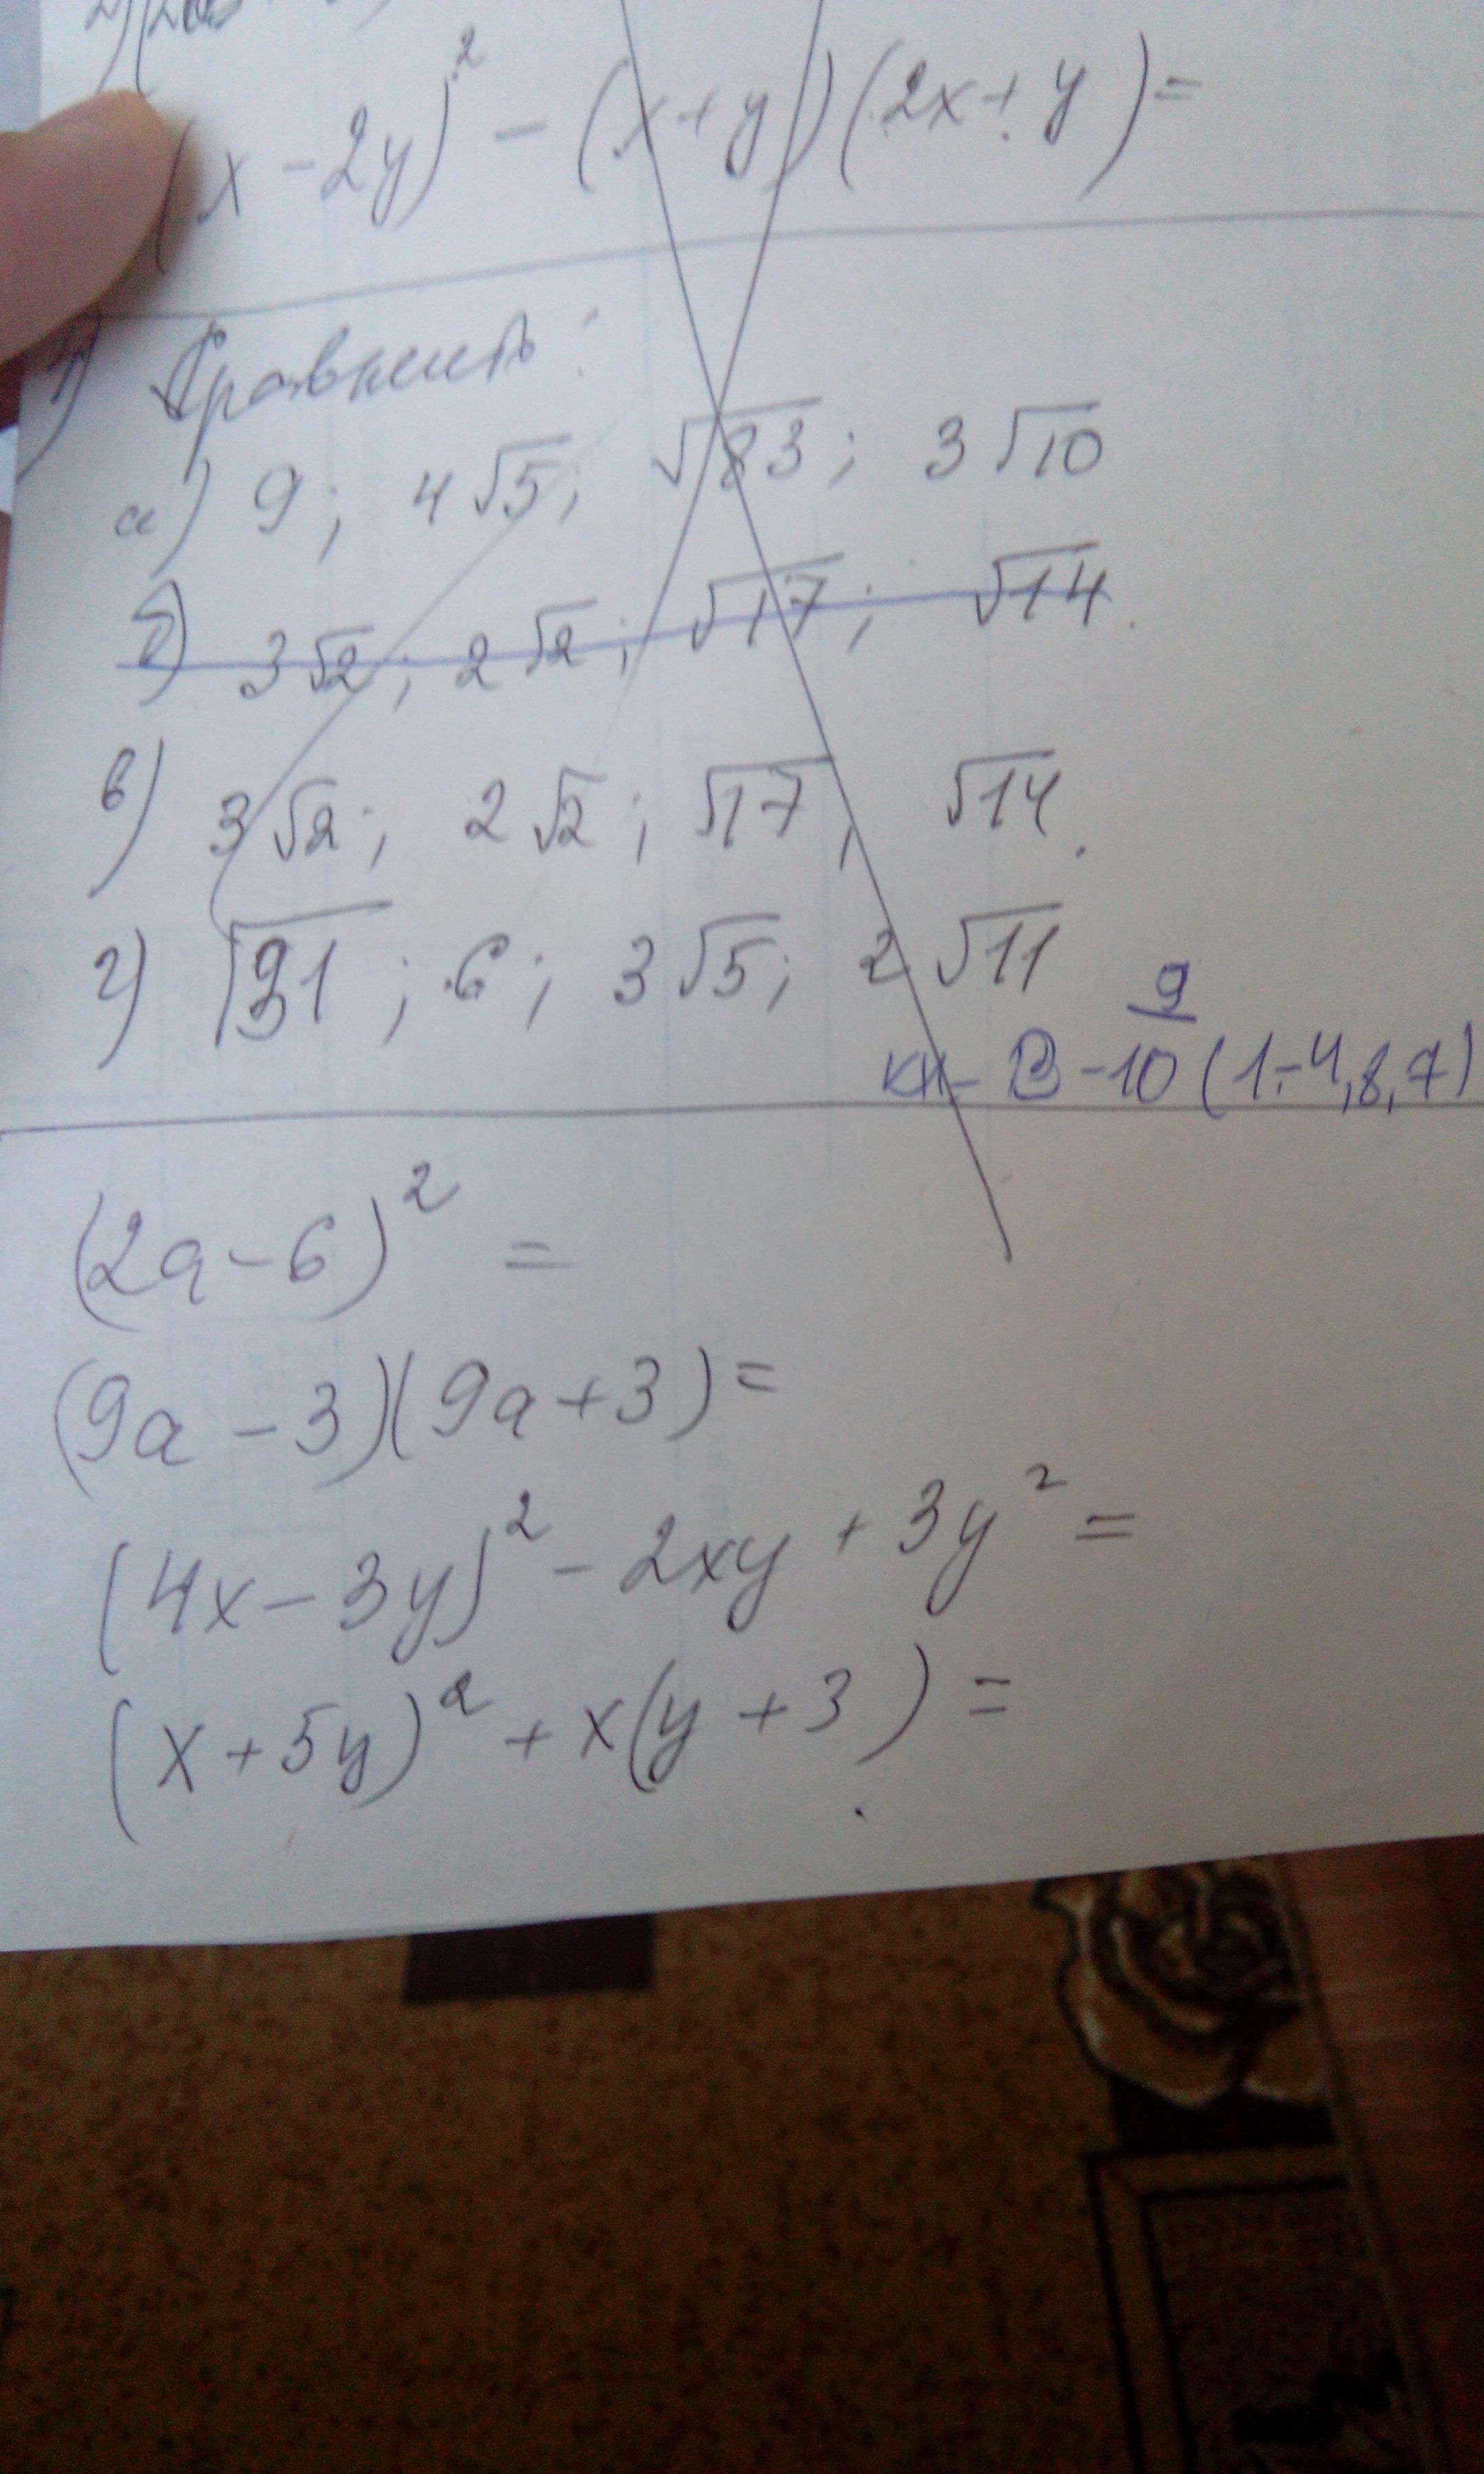 (x - 2y)² - (x + y)(2x + y) =
Сравнить:
а) 9; 4√5; √83; 3√10
б) 3√2; 2√2; √17; √14.
в) 3√2; 2√2; √17, √14.
г) √31; 6; 3√5; 2√11
9
В-10 (1-4,8,7)
(2a-6)² =
(9a - 3)(9a + 3) =
(4x - 3y)² - 2xy + 3y² =
(x + 5y)² + x(y + 3) =